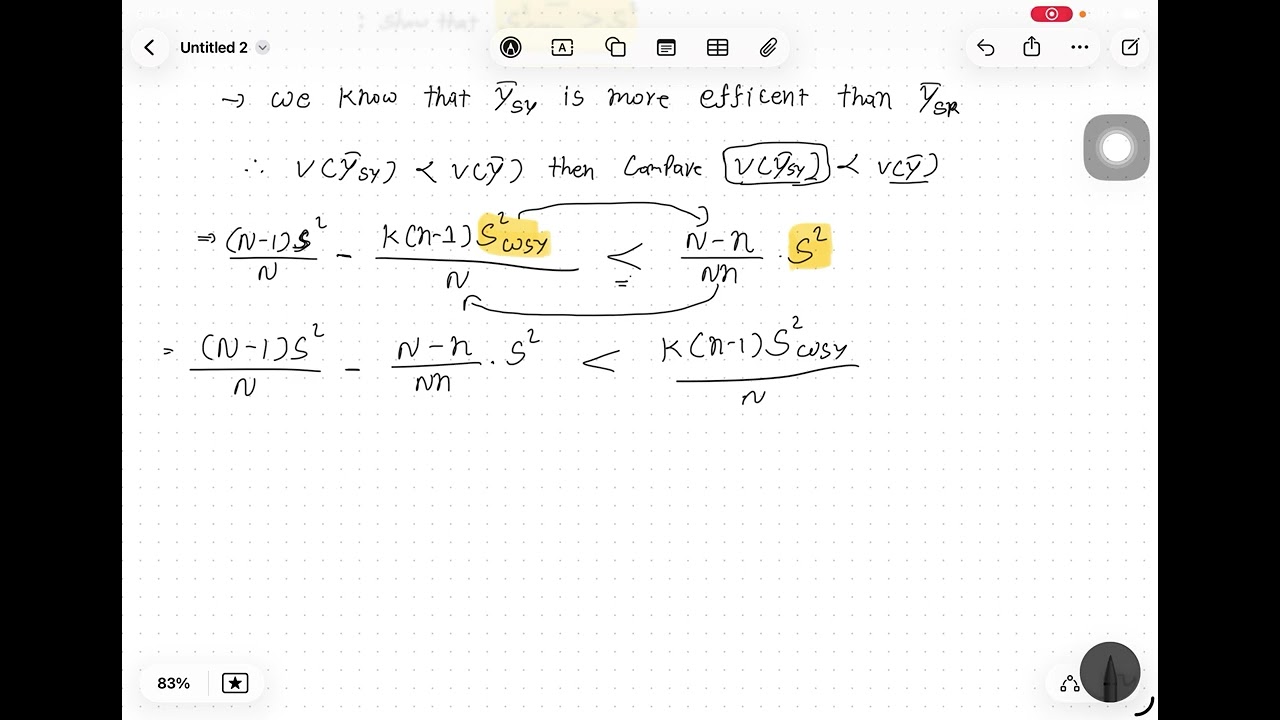 : show that
Untitled 2
→ we know that ȳsy is more efficent than ȳSR
∴ V(ȳsy) < V(ȳ) then Compare V(ȳsy) < V(ȳ)
⇒ (N-1)S²/N - K(n-1)S²wsy/N < N-n/Nn · S²
= (N-1)S²/N - N-n/Nn · S² < K(n-1)S²wsy/N
83%